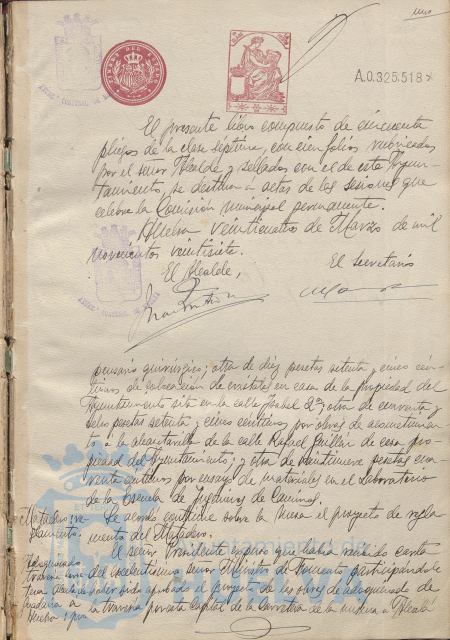 uno
TIMBRE DEL ESTADO
A.0.325.518
El presente libro compuesto de cincuenta
pliegos de la clase septima, con cien folios rubricados
por el señor Alcalde y sellados con el de este Ayun-
tamiento, se destina a actas de las sesiones que
celebra la Comisión municipal permanente.
Huelva veinticuatro de Marzo de mil
novecientos veintisiete.
El Alcalde,
El Secretario
pensario quirúrgico; otra de diez pesetas setenta y cinco cén-
timos de colocación de cristales en casa de la propiedad del
Ayuntamiento sita en la calle Isabel 2ª; otra de cincuenta y
seis pesetas setenta y cinco centimos por obras de acometimien-
to á la alcantarilla de la calle Rafael Guillén de casa pro-
piedad del Ayuntamiento; y otra de veintinueve pesetas cua-
renta centimos por ensayo de materiales en el Laboratorio
de la Escuela de Ingenieros de Caminos.
Matadero; re-
glamento.
Se acordó continúe sobre la mesa el proyecto de regla-
mento del Matadero.
Adoquinado
El señor Presidente expuso que había recibido carta
del excelentísimo señor Ministro de Fomento participándole
haber sido aprobado el proyecto de las obras de adoquinado de
la travesía por esta Capital de la Carretera de la misma a Alcalá
Ayuntamiento de
Huelva